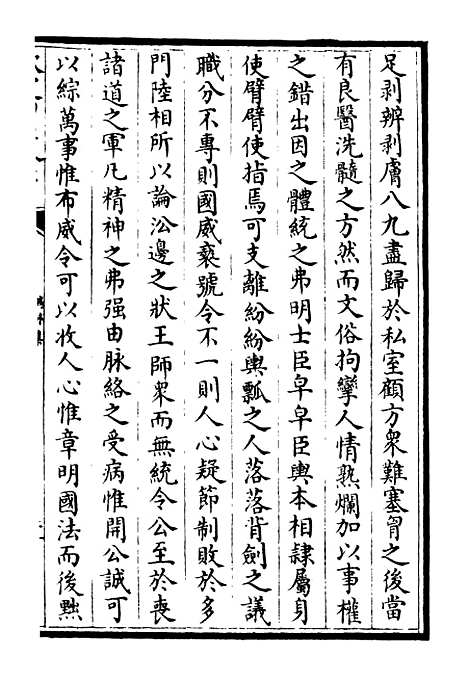 足剥辨剥膚八九盡歸於私室顧方衆難塞胷之後當
有良醫洗髓之方然而文俗拘攣人情熟爛加以事權
之錯出因之體統之弗明士臣皁皁臣輿本相隷屬身
使臂臂使指焉可支離紛紛輿瓢之人落落背劍之議
職分不專則國威褻號令不一則人心疑節制敗於多
門陸相所以論㳂邊之狀王師衆而無統令公至於喪
諸道之軍凡精神之弗强由脉絡之受病惟開公誠可
以綜萬事惟布威令可以收人心惟章明國法而後黙